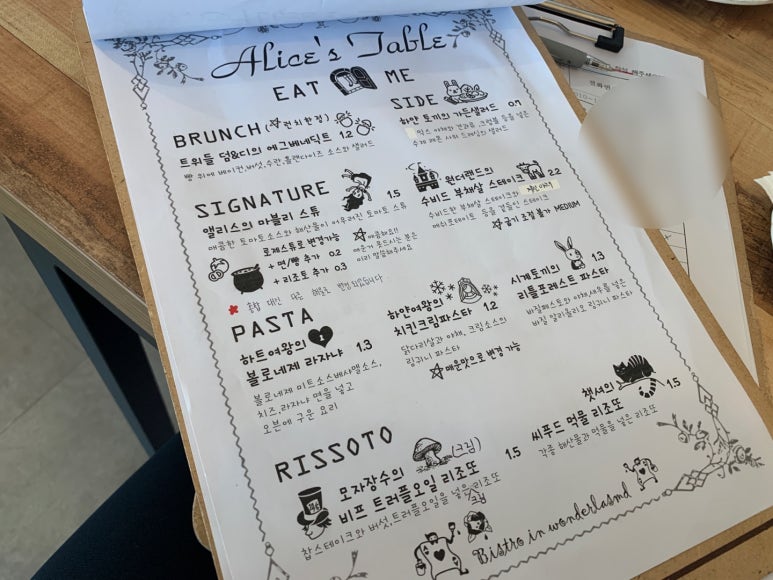 Alice's Table
EAT ME
BRUNCH (☆런치한정)
트위들 덤&디의 에그베네딕트 1.2
빵 위에 베이컨,버섯,수란,홀랜다이즈 소스와 샐러드
SIDE
하얀 토끼의 가든샐러드 0.7
믹스 야채와 견과류, 크랜베리 등을 넣은
수제 레몬 시트러스 드레싱의 샐러드
SIGNATURE
앨리스의 마블리 스튜 1.5
매콤한 토마토소스와 해산물이 어우러진 토마토 스튜
로제스튜로 변경가능
+ 면/빵 추가 0.2
+ 리조또 추가 0.3
☆매콤해요!!
매운거 못드시는 분은
미리 말씀해주세요
원더랜드의
수비드 부채살 스테이크 2.2
수비드한 부채살 스테이크와
매쉬포테이토 등을 곁들인 스테이크
☆굽기 조절 불가 MEDIUM
PASTA
하트여왕의
볼로네제 라자냐 1.3
볼로네제 미트소스베샤멜소스,
치즈,라자냐 면을 넣고
오븐에 구운 요리
하얀여왕의
치킨크림파스타 1.2
닭다리살과 야채, 크림소스의
링귀니 파스타
☆매운맛으로 변경 가능
시계토끼의 1.3
리틀포레스트 파스타
바질페스토와 야채,새우를 넣은
바질 알리올리오 링귀니 파스타
RISSOTO
모자장수의 (크림)
비프 트러플오일 리조또 1.5
찹스테이크와 버섯,트러플오일을 넣은 리조또
크림
챗셔의
씨푸드 먹물 리조또 1.5
각종 해산물과 먹물을 넣은 리조또
Bistro in wonderlasmd